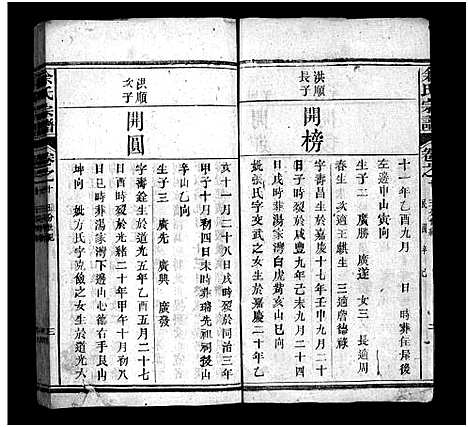 余氏宗譜
十一年乙酉九月 日 時葬住屋後
左邊甲山寅向
生子二 廣勝 廣遂 女三 長適周
春生 次適王麒生 三適詹德祿
洪順
長子
開榜
字 生於嘉慶十七年壬申九月二十
日子時 於咸豐九年己未九月二十四
日戌時葬湯家灣白虎 亥山巳向
妣張氏字交武之女生於嘉慶二十年乙
亥十一月二十八日戌時 於同治三年
甲子十月初四日未時葬瑞光祖祠
辛山乙向
生子三 廣先 廣興 廣發
洪順
次子
開圓
字壽銓生於道光五年乙酉五月二十七
日酉時 於光緒二十年甲午十月初八
日巳時葬湯家灣下邊山心德右手艮山
坤向
妣方氏字克儉之女生於道光八
余氏宗譜
卷之十
三